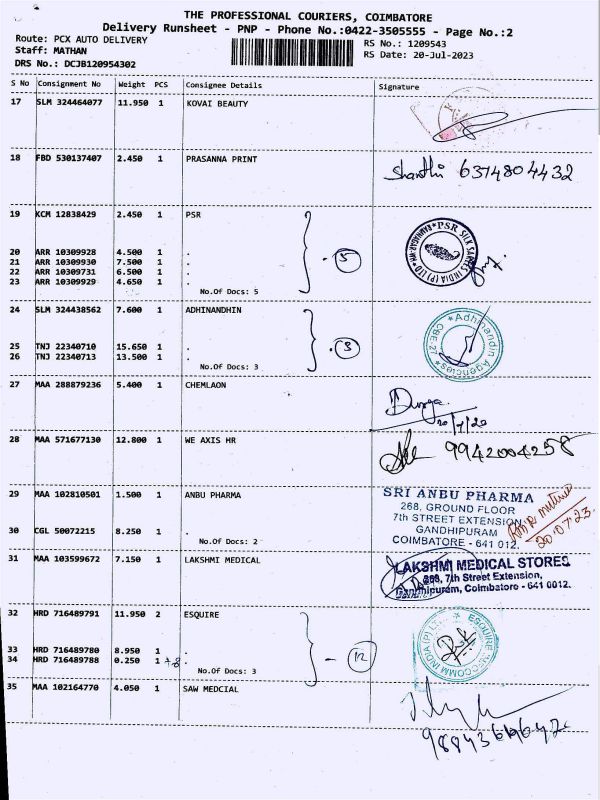 THE PROFESSIONAL COURIERS, COIMBATORE
Delivery Runsheet - PNP - Phone No.:0422-3505555 - Page No.:2
Route: PCX AUTO DELIVERY
RS No.: 1209543
Staff: MATHAN
RS Date: 20-Jul-2023
DRS No.: DCJB120954302
S No Consignment No Weight PCS Consignee Details Signature
17 SLM 324464077 11.950 1 KOVAI BEAUTY
18 FBD 530137407 2.450 1 PRASANNA PRINT
Shanthi 6374804432
19 KCM 12838429 2.450 1 PSR
PSR SILK SAREES INDIA (P) LTD
20 ARR 10309928 4.500 1 .
21 ARR 10309930 7.500 1 .
22 ARR 10309731 6.500 1 .
23 ARR 10309929 4.650 1 .
- 5
No.Of Docs: 5
24 SLM 324438562 7.600 1 ADHINANDHIN
*Adhinandin Agencies* CBE-27
25 TNJ 22340710 15.650 1 .
26 TNJ 22340713 13.500 1 .
- 3
No.Of Docs: 3
27 MAA 288879236 5.400 1 CHEMLAON
Durga
20/7/20
28 MAA 571677130 12.800 1 WE AXIS HR
9942004258
29 MAA 102810501 1.500 1 ANBU PHARMA
SRI ANBU PHARMA
268, GROUND FLOOR
7th STREET EXTENSION
GANDHIPURAM
COIMBATORE - 641 012.
20.07.23
30 CGL 50072215 8.250 1 .
No.Of Docs: 2
31 MAA 103599672 7.150 1 LAKSHMI MEDICAL
LAKSHMI MEDICAL STORES
268, 7th Street Extension,
Gandhipuram, Coimbatore - 641 0012.
32 HRD 716489791 11.950 2 ESQUIRE
33 HRD 716489780 8.950 1 .
34 HRD 716489788 0.250 1 +8 .
- 12
No.Of Docs: 3
35 MAA 102164770 4.050 1 SAW MEDCIAL